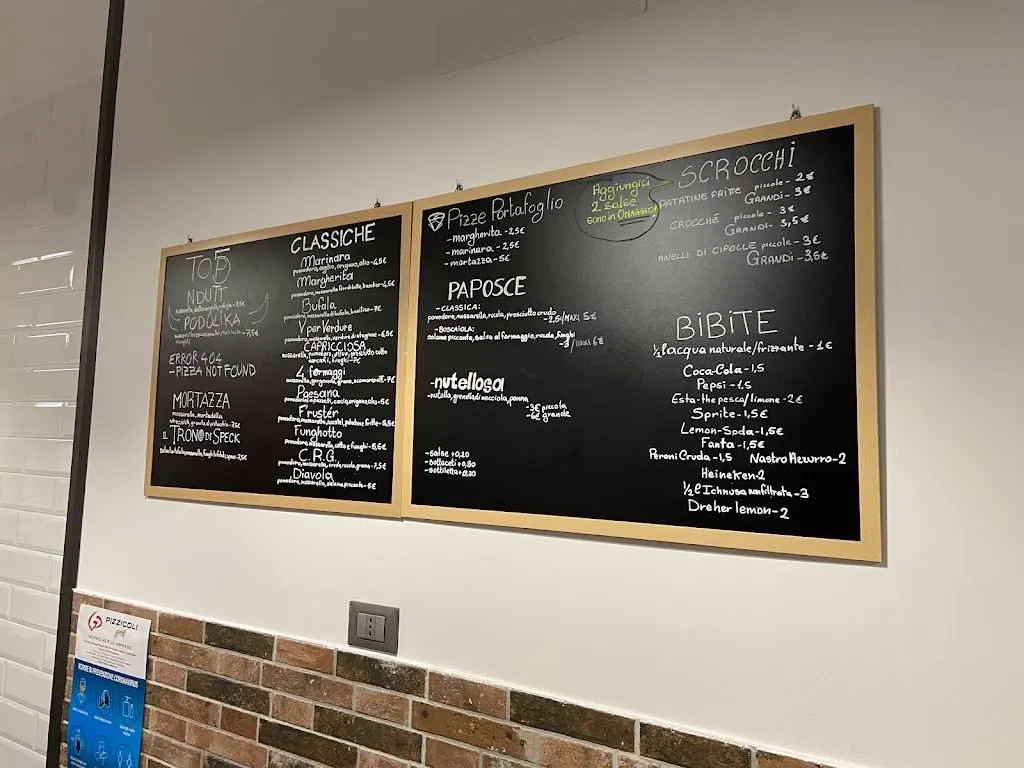 TOP 5
NDUTT
PODOLIKA
-7,5€
ERROR 404
- PIZZA NOT FOUND
MORTAZZA
mozzarella, mortadella,
IL TRONO DI SPECK
CLASSICHE
Marinara
pomodoro, aglio, origano, olio - 4,5€
Margherita
pomodoro, mozzarella fiordilatte, basilico - 4,5€
Bufala
pomodoro, mozzarella di bufala, basilico - 7€
V per Verdure
pomodoro, mozzarella, verdure di stagione - 6,5€
CAPRICCIOSA
mozzarella, pomodoro, olive, prosciutto cotto
carciofi, funghi - 7€
4 formaggi
mozzarella, gorgonzola, grana, scamorza aff. - 7€
Paesana
- 5€
Frustér
pomodoro, mozzarella, wurstel, patatine fritte - 6,5€
Funghotto
pomodoro, mozzarella, cotto e funghi - 6,5€
C.R.G.
pomodoro, mozzarella, crudo, rucola, grana - 7,5€
Diavola
pomodoro, mozzarella, salame piccante - 6€
Pizze Portafoglio
- margherita - 2,5€
- marinara - 2,5€
- mortazza - 5€
PAPOSCE
- CLASSICA:
pomodoro, mozzarella, rucola, prosciutto crudo
- 2,5€/MAXI 5€
- BOSCAIOLA:
salame piccante, salsa al formaggio, rucola, funghi
- 3/MAXI 6€
- nutellosa
- nutella, granella di nocciola, panna
- 3€ piccola
- 6€ grande
- salse +0,20
- sottaceti +0,30
- sottiletta +0,20
Aggiungici
2 salse
sono in OMAGGIO!
SCROCCHI
PATATINE FRITTE piccole - 2€
GRANDI - 3€
CROCCHÈ piccole - 3€
GRANDI - 3,5€
ANELLI DI CIPOLLE piccole - 3€
GRANDI - 3,5€
BIBITE
½ l acqua naturale/frizzante - 1€
Coca-Cola - 1,5
Pepsi - 1,5
Esta-the pesca/limone - 2€
Sprite - 1,5€
Lemon-Soda - 1,5€
Fanta - 1,5€
Peroni Cruda - 1,5 Nastro Azzurro - 2
Heineken - 2
½ l Ichnusa non filtrata - 3
Dreher lemon - 2
PIZZICOLI
NORME DI PREVENZIONE CORONAVIRUS